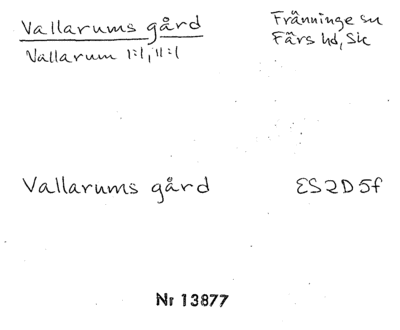 Vallarums gård
Vallarum 1:1, 11:1
Fränninge sn
Färs hd, Sk
Vallarums gård
ES2D5f
Nr 13877